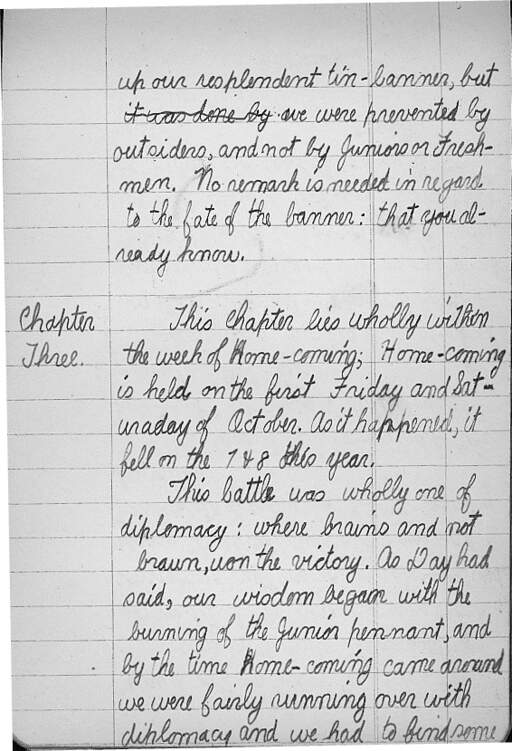 up our resplendent tin-banner, but
it was done by we were prevented by
outsiders, and not by Juniors or Fresh-
men. No remark is needed in regard
to the fate of the banner: that you al-
ready know.
Chapter
Three.
This chapter lies wholly within
the week of Home-coming; Home-coming
is held on the first Friday and Sat-
uraday of October. As it happened, it
fell on the 7 & 8 this year.
This battle was wholly one of
diplomacy: where brains and not
braun, won the victory. As Day had
said, our wisdom began with the
burning of the Junior pennant, and
by the time Home-coming came around
we were fairly running over with
diplomacy and we had to find some